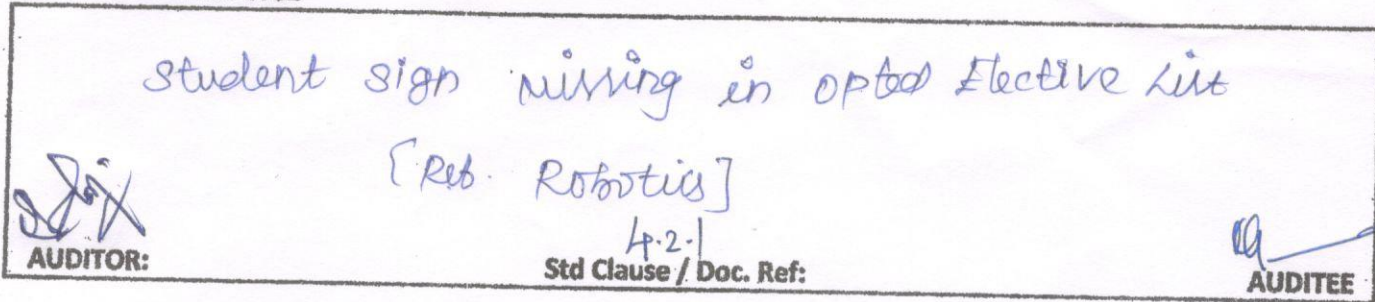 Student sign missing in opted Elective List
[Ref. Robotics]
4.2.1
AUDITOR:
Std Clause / Doc. Ref:
AUDITEE